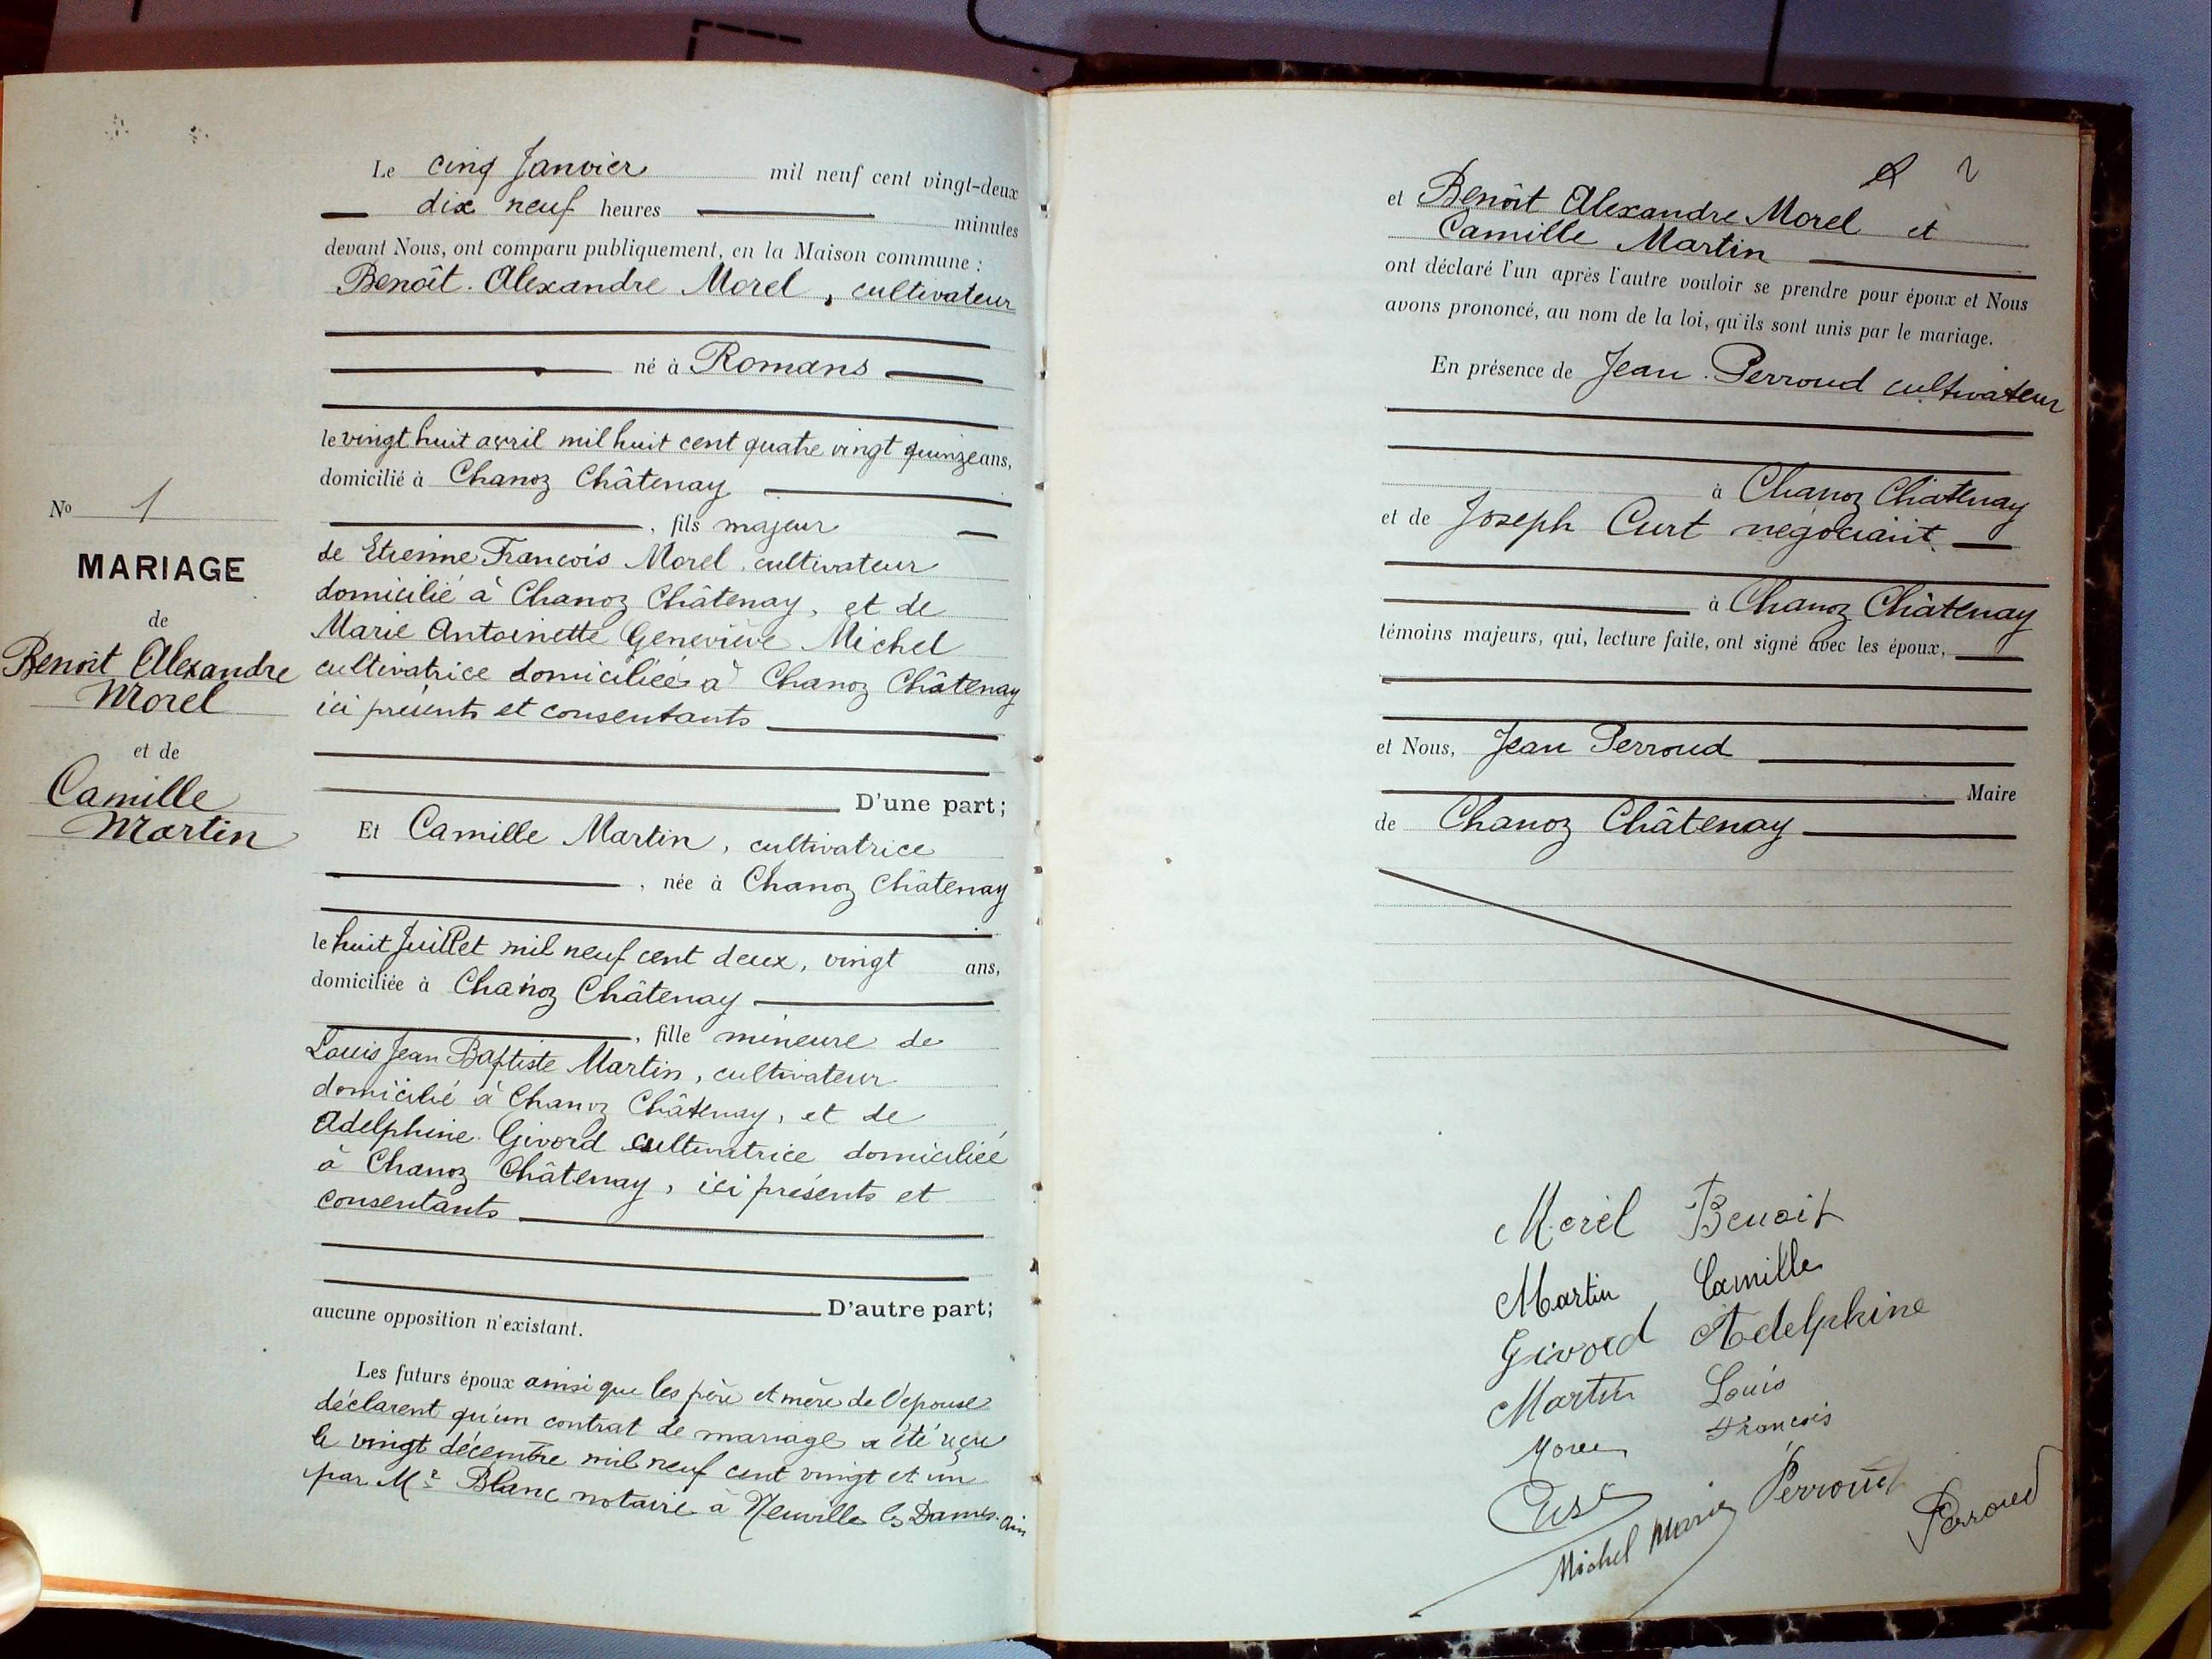 No 1
MARIAGE
de
Benoît Alexandre
Morel
et de
Camille
Martin
Le cinq Janvier mil neuf cent vingt-deux
dix neuf heures minutes
devant Nous, ont comparu publiquement, en la Maison commune :
Benoît Alexandre Morel, cultivateur
né à Romans
le vingt huit avril mil huit cent quatre vingt quinze ans,
domicilié à Chanoz Châtenay
, fils majeur
de Etienne François Morel, cultivateur
domicilié à Chanoz Châtenay, et de
Marie Antoinette Geneviève Michel
cultivatrice domiciliée à Chanoz Châtenay
ici présents et consentants
D'une part ;
Et Camille Martin, cultivatrice
, née à Chanoz Châtenay
le huit Juillet mil neuf cent deux, vingt ans,
domiciliée à Chanoz Châtenay
, fille mineure de
Louis Jean Baptiste Martin, cultivateur
domicilié à Chanoz Châtenay, et de
Adelphine Givord cultivatrice domiciliée
à Chanoz Châtenay, ici présents et
consentants
D'autre part;
aucune opposition n'existant.
Les futurs époux ainsi que les père et mère de l'épouse
déclarent qu'un contrat de mariage a été reçu
le vingt décembre mil neuf cent vingt et un
par Me Blanc notaire à Neuville les Dames. Ain
2
et Benoît Alexandre Morel et
Camille Martin
ont déclaré l'un après l'autre vouloir se prendre pour époux et Nous
avons prononcé, au nom de la loi, qu'ils sont unis par le mariage.
En présence de Jean Perroud cultivateur
à Chanoz Châtenay
et de Joseph Curt négociant
à Chanoz Châtenay
témoins majeurs, qui, lecture faite, ont signé avec les époux,
et Nous, Jean Perroud
Maire
de Chanoz Châtenay
Morel Benoit
Martin Camille
Givord Adelphine
Martin Louis
Morel François
Curt
Michel Marie Perroud
Perroud